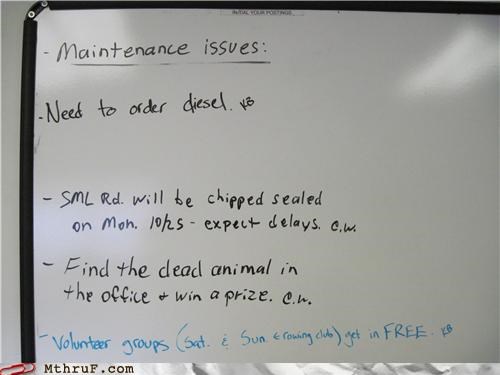 INITIAL YOUR POSTINGS
- Maintenance issues:
- Need to order diesel. KB
- SML Rd. will be chipped sealed
on Mon. 10/25 - expect delays. C.W.
- Find the dead animal in
the office + win a prize. C.W.
- Volunteer groups (Sat. & Sun. & rowing club) get in FREE. KB
MThruF.com